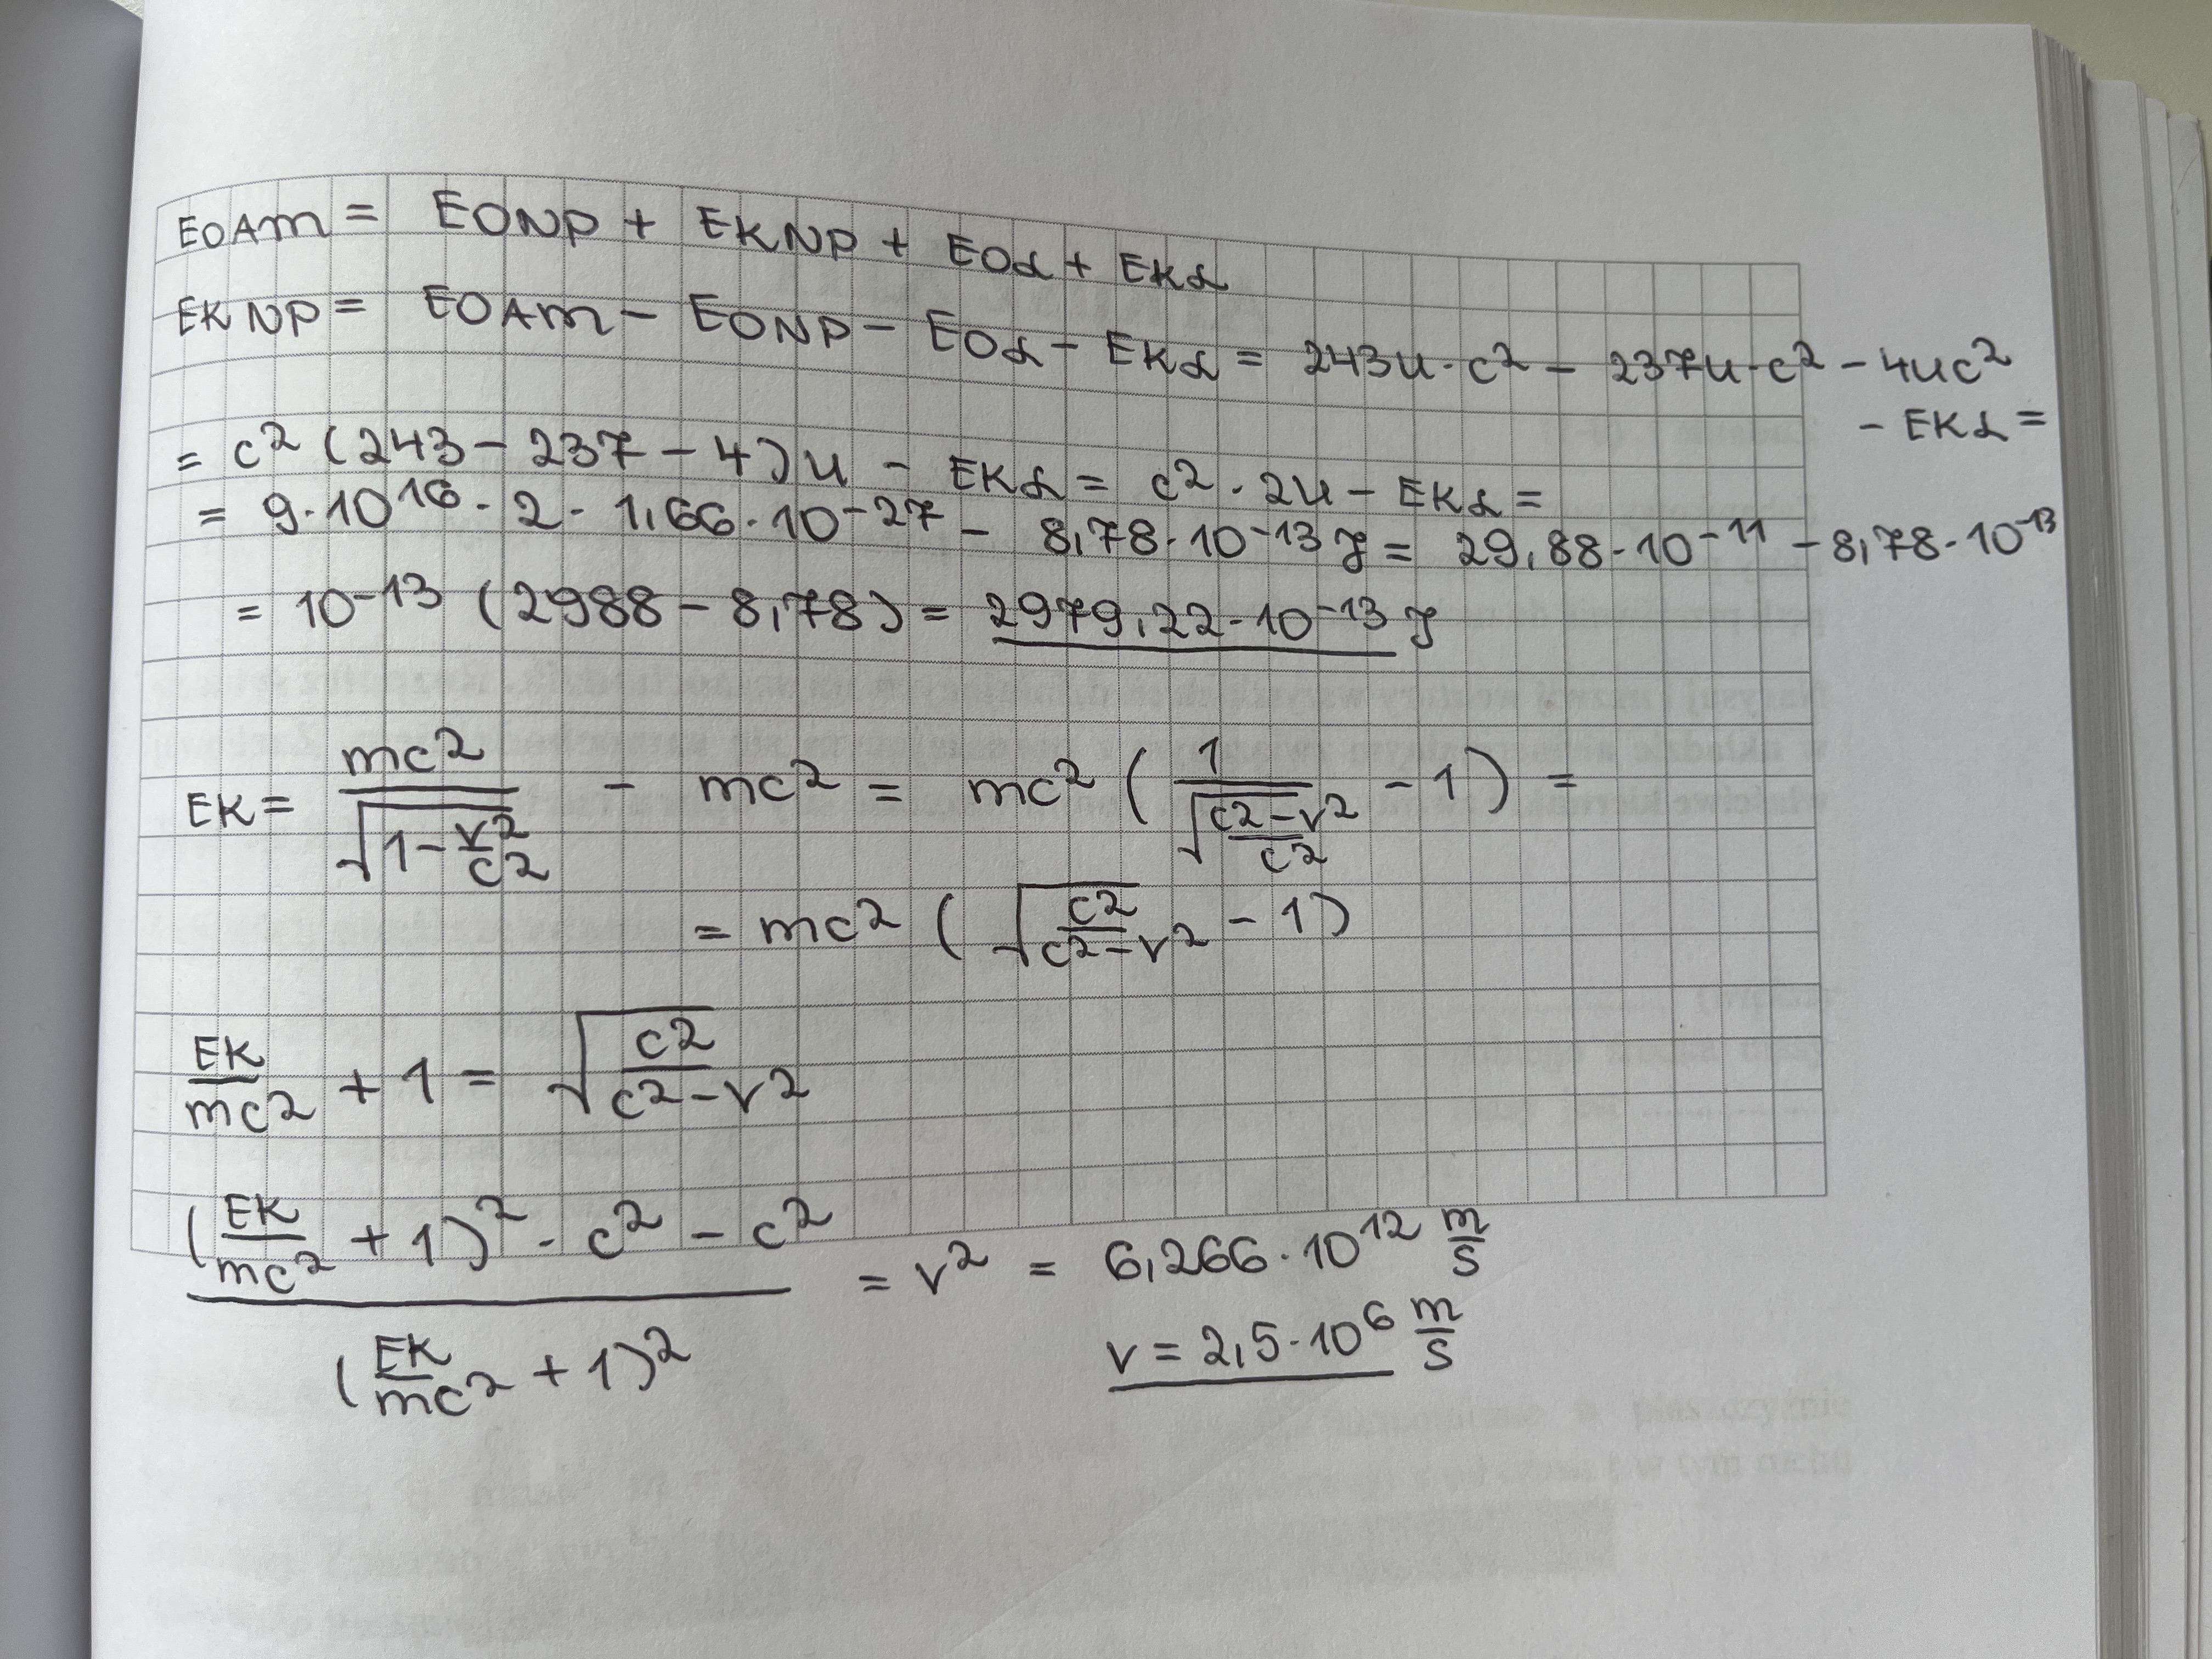 E0Am = E0Np + EKNp + E0α + EKα
EKNp = E0Am - E0Np - E0α - EKα = 243u·c² - 237u·c² - 4uc²
- EKα =
= c² (243 - 237 - 4)u - EKα = c² · 2u - EKα =
= 9·10¹⁶ · 2 · 1,66·10⁻²⁷ - 8,78·10⁻¹³ J = 29,88·10⁻¹¹ - 8,78·10⁻¹³
= 10⁻¹³ (2988 - 8,78) = 2979,22·10⁻¹³ J
EK = mc² / √(1 - v²/c²) - mc² = mc² (1 / √((c² - v²)/c²) - 1) =
= mc² (√(c²/(c² - v²)) - 1)
EK/mc² + 1 = √(c²/(c² - v²))
((EK/mc² + 1)² · c² - c²) / (EK/mc² + 1)² = v² = 6,266·10¹² m/s
v = 2,5·10⁶ m/s